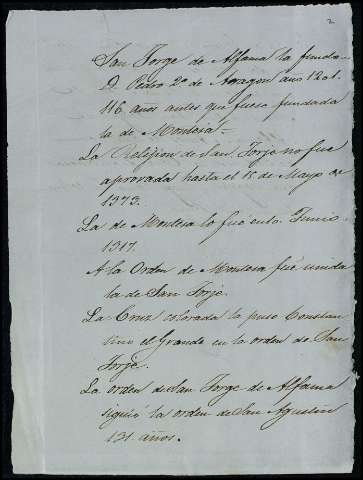 2
San Jorge de Alfama la fundo
D. Pedro 2º de Aragon ano 1201.
116 años antes que fuese fundada
la de Montesa =
La Religion de San Jorje no fue
aprovada hasta el 15 de Mayo de
1373.
La de Montesa lo fué en 10. Junio
1317.
A la Orden de Montesa fué unida
la de San Jorje.
La Cruz colorada la puso Constan
tino el Grande en la orden de San
Jorje.
La orden de San Jorge de Alfama
siguió la orden de San Agustin
131 años.